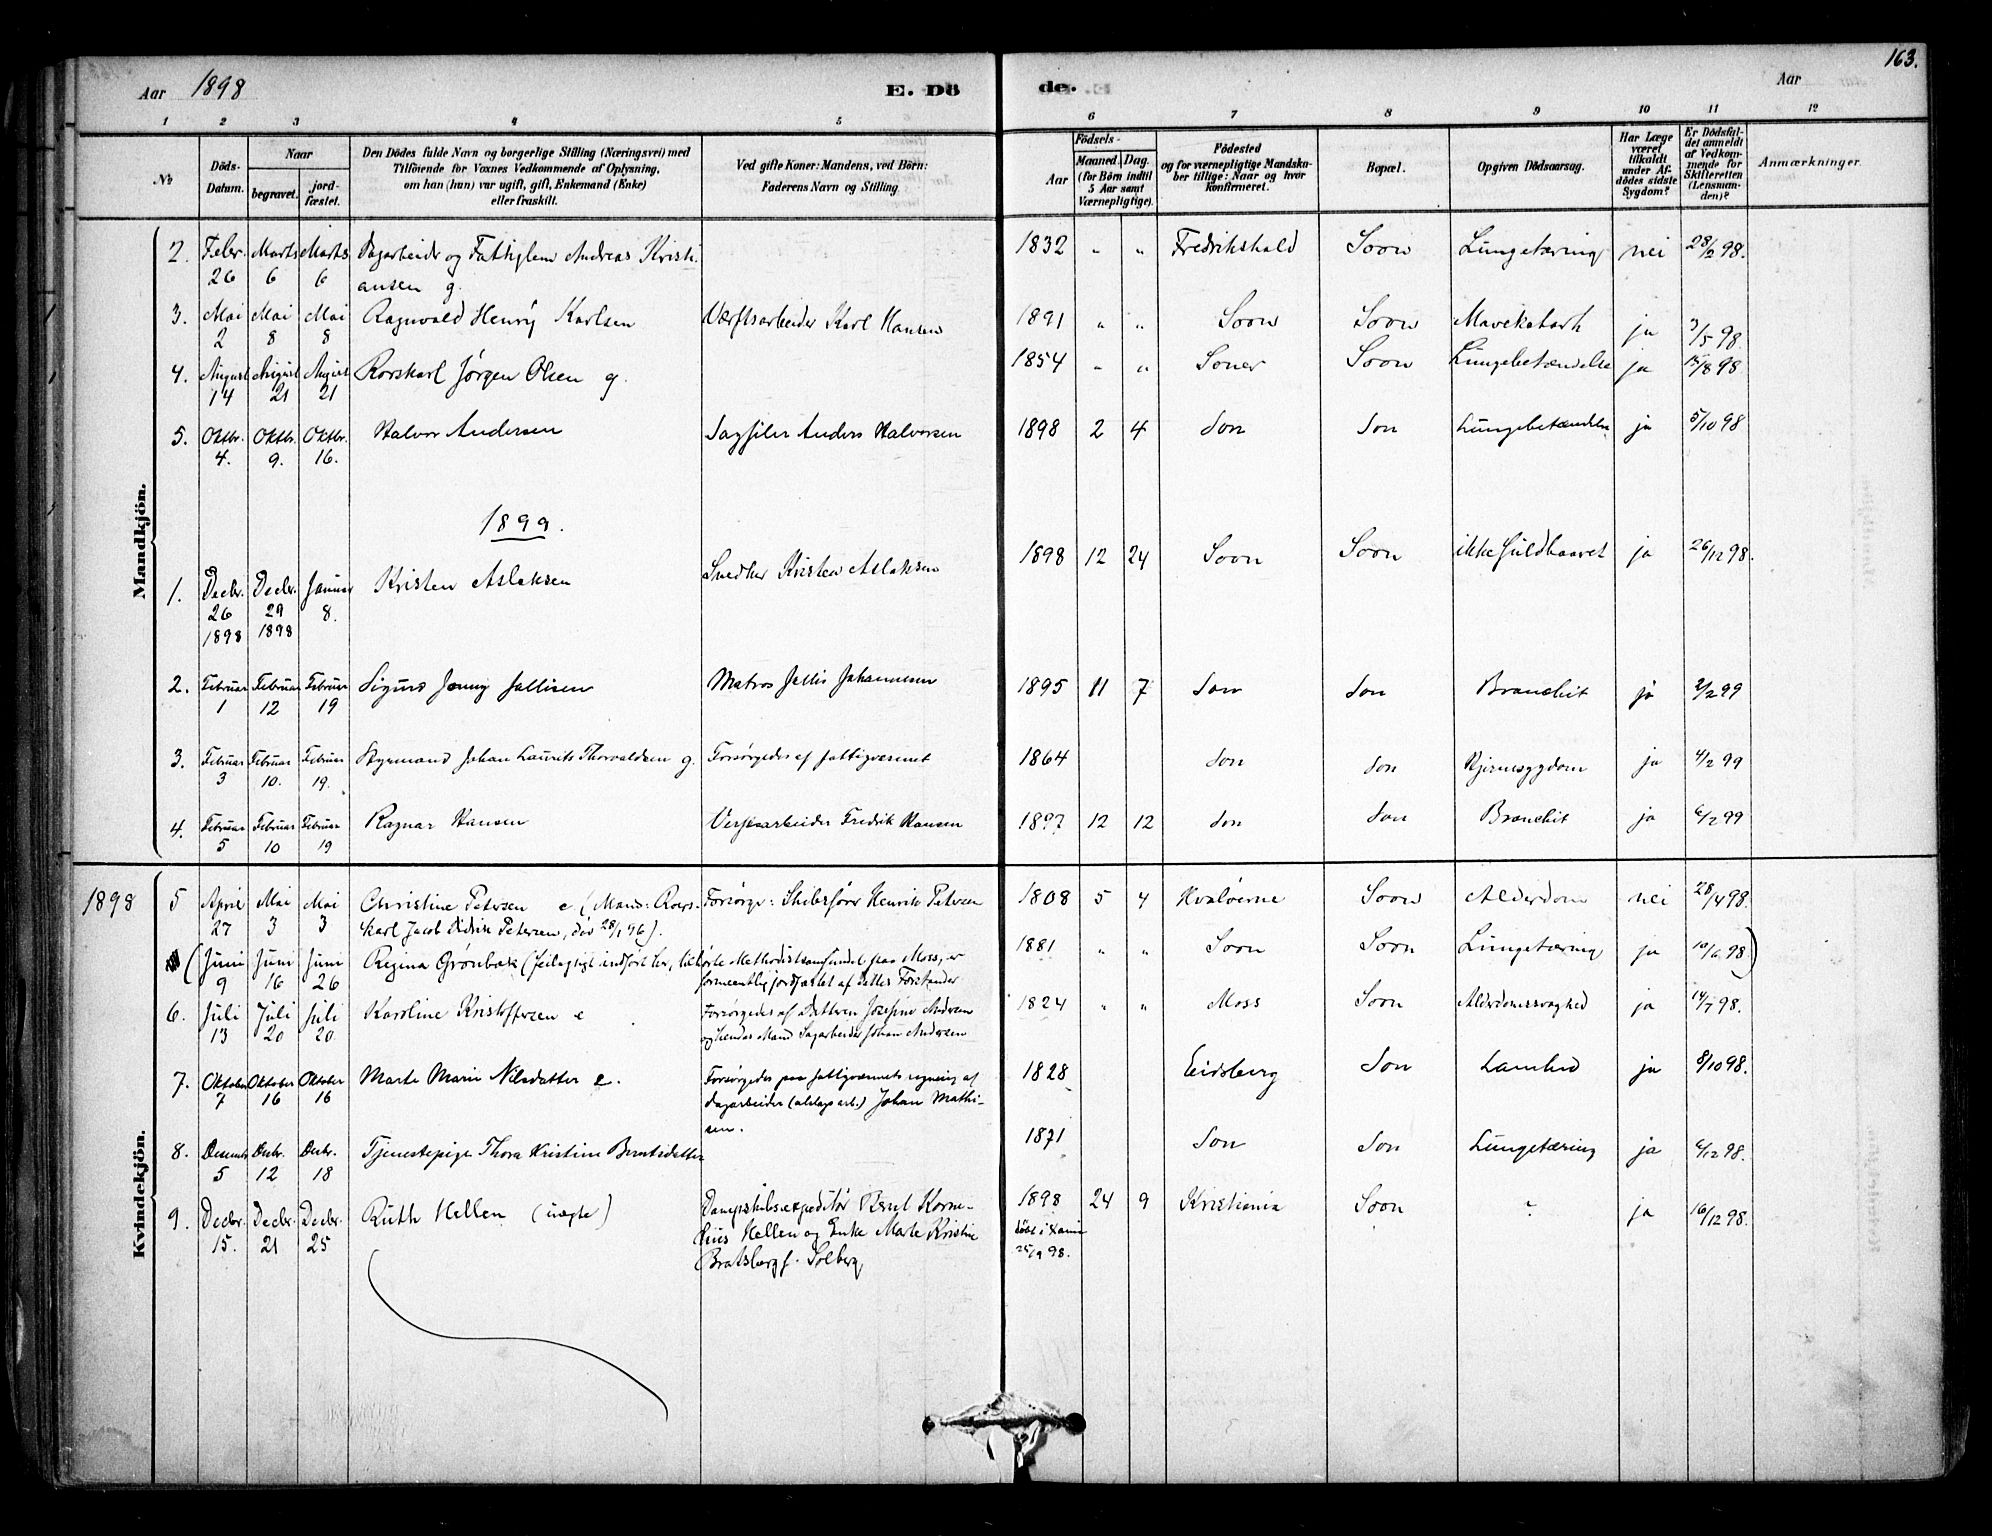 163.
Aar 1898 E. Dö de. Aar
1 2 3 4 5 6 7 8 9 10 11 12
No
Döds-Datum.
Naar
begravet.
jord-fæstet.
Den Dödes fulde Navn og borgerlige Stilling (Næringsvei) med
Tilföiende for Voxnes Vedkommende af Oplysning,
om han (hun) var ugift, gift, Enkemand (Enke)
eller fraskilt.
Ved gifte Koner: Mandens, ved Börn:
Faderens Navn og Stilling
Födsels-
Aar
Maaned. Dag.
(for Børn indtil
5 Aar samt
Værnepligtige).
Födested
og for værnepligtige Mandska-
ber tillige: Naar og hvor
konfirmeret.
Bopæl.
Opgiven Dödsaarsag.
Har Læge
været
tilkaldt
under Af-
dödes sidste
Sygdom?
Er Dödsfal-
det anmeldt
af Vedkom-
mende for
Skifteretten
(Lensman-
den)?
Anmærkninger.
Mandkjön.
2. Febr. Marts Marts Dagarbeider og Fattiglem Andreas Kristi- 1832 " " Fredrikshald Soon Lungetæring nei 28/2 98.
26 6 6 ansen g.
3. Mai Mai Mai Ragnvald Henry Karlsen Værftsarbeider Karl Hansen 1891 " " Soon Soon Mavekatarh ja 3/5 98.
2 8 8
4. August August August Rorskarl Jørgen Olsen g. 1854 " " Soner Soon Lungebetændelse ja 15/8 98
14 21 21
5. Oktbr. Oktbr. Oktbr. Halvor Andersen Sagfiler Anders Halvorsen 1898 2 4 Son Son Lungebetændelse ja 5/10 98
4. 9. 16.
1899.
1. Decbr. Decbr. Januar Kristen Aslaksen Snedker Kristen Aslaksen 1898 12 24 Soon Soon ikke fuldbaaret ja 26/12 98.
26 29 8.
1898 1898
2. Februar Februar Februar Sigurd Jenny Jallisen Matros Jallis Johannesen 1895 11 7 Son Son Bronchit ja 2/2 99
1 12 19
3. Februar Februar Februar Styrmand Johan Laurits Thorvaldsen g. Forsørgedes af fattigvæsenet 1864 Son Son Hjernesygdom ja 4/2 99
3 10. 19.
4. Februar Februar Februar Ragnar Hansen Verftsarbeider Fredrik Hansen 1897 12 12 Son Son Bronchit ja 6/2 99
5 10 19
Kvindekjön.
1898 5 April Mai Mai Christine Petersen e (Mand: Rors- Forsørger: Skibsfører Henrik Petersen 1808 5 4 Hvaløerne Soon Alderdom nei 28/4 98.
27 3 3 karl Jacob Didrik Petersen, død 28/1 96).
(Juni Juni Juni Regina Grønbæk (feilagtigt indført her, tilhørte Methodistsamfundet paa Moss, er 1881 " " Soon Soon Lungetæring ja 10/6 98)
9 16 26 formentlig jordfæstet af dettes Forstander
6. Juli Juli Juli Karoline Kristoffersen e Forsørgedes af Datteren Josefine Andersen 1824 " " Moss Soon Alderdomssvaghed ja 14/7 98.
13 20 20 og hendes Mand Sagarbeider Johan Andersen
7. Oktober Oktober Oktober Marte Marie Nilsdatter e. Forsørgedes paa fattigvæsnets regning af 1828 Eidsberg Son Lamhed ja 8/10 98.
7 16 16 dagarbeider (alslags arb.) Johan Mathi-
sen.
8. Decembr Decbr. Decbr. Tjenestepige Thora Kristine Berntsdatter 1871 Son Son Lungetæring ja 6/12 98.
5 12 18
9. Decbr. Decbr. Decbr. Ruth Hellen (uægte) Dampskibsexpeditør Bernt Korne- 1898 24 9 Kristiania Soon ? ja 16/12 98.
15. 21 25 lius Hellen og Enke Marte Kristine døbt i Xania
Bratsberg f. Solberg 25/9 98.